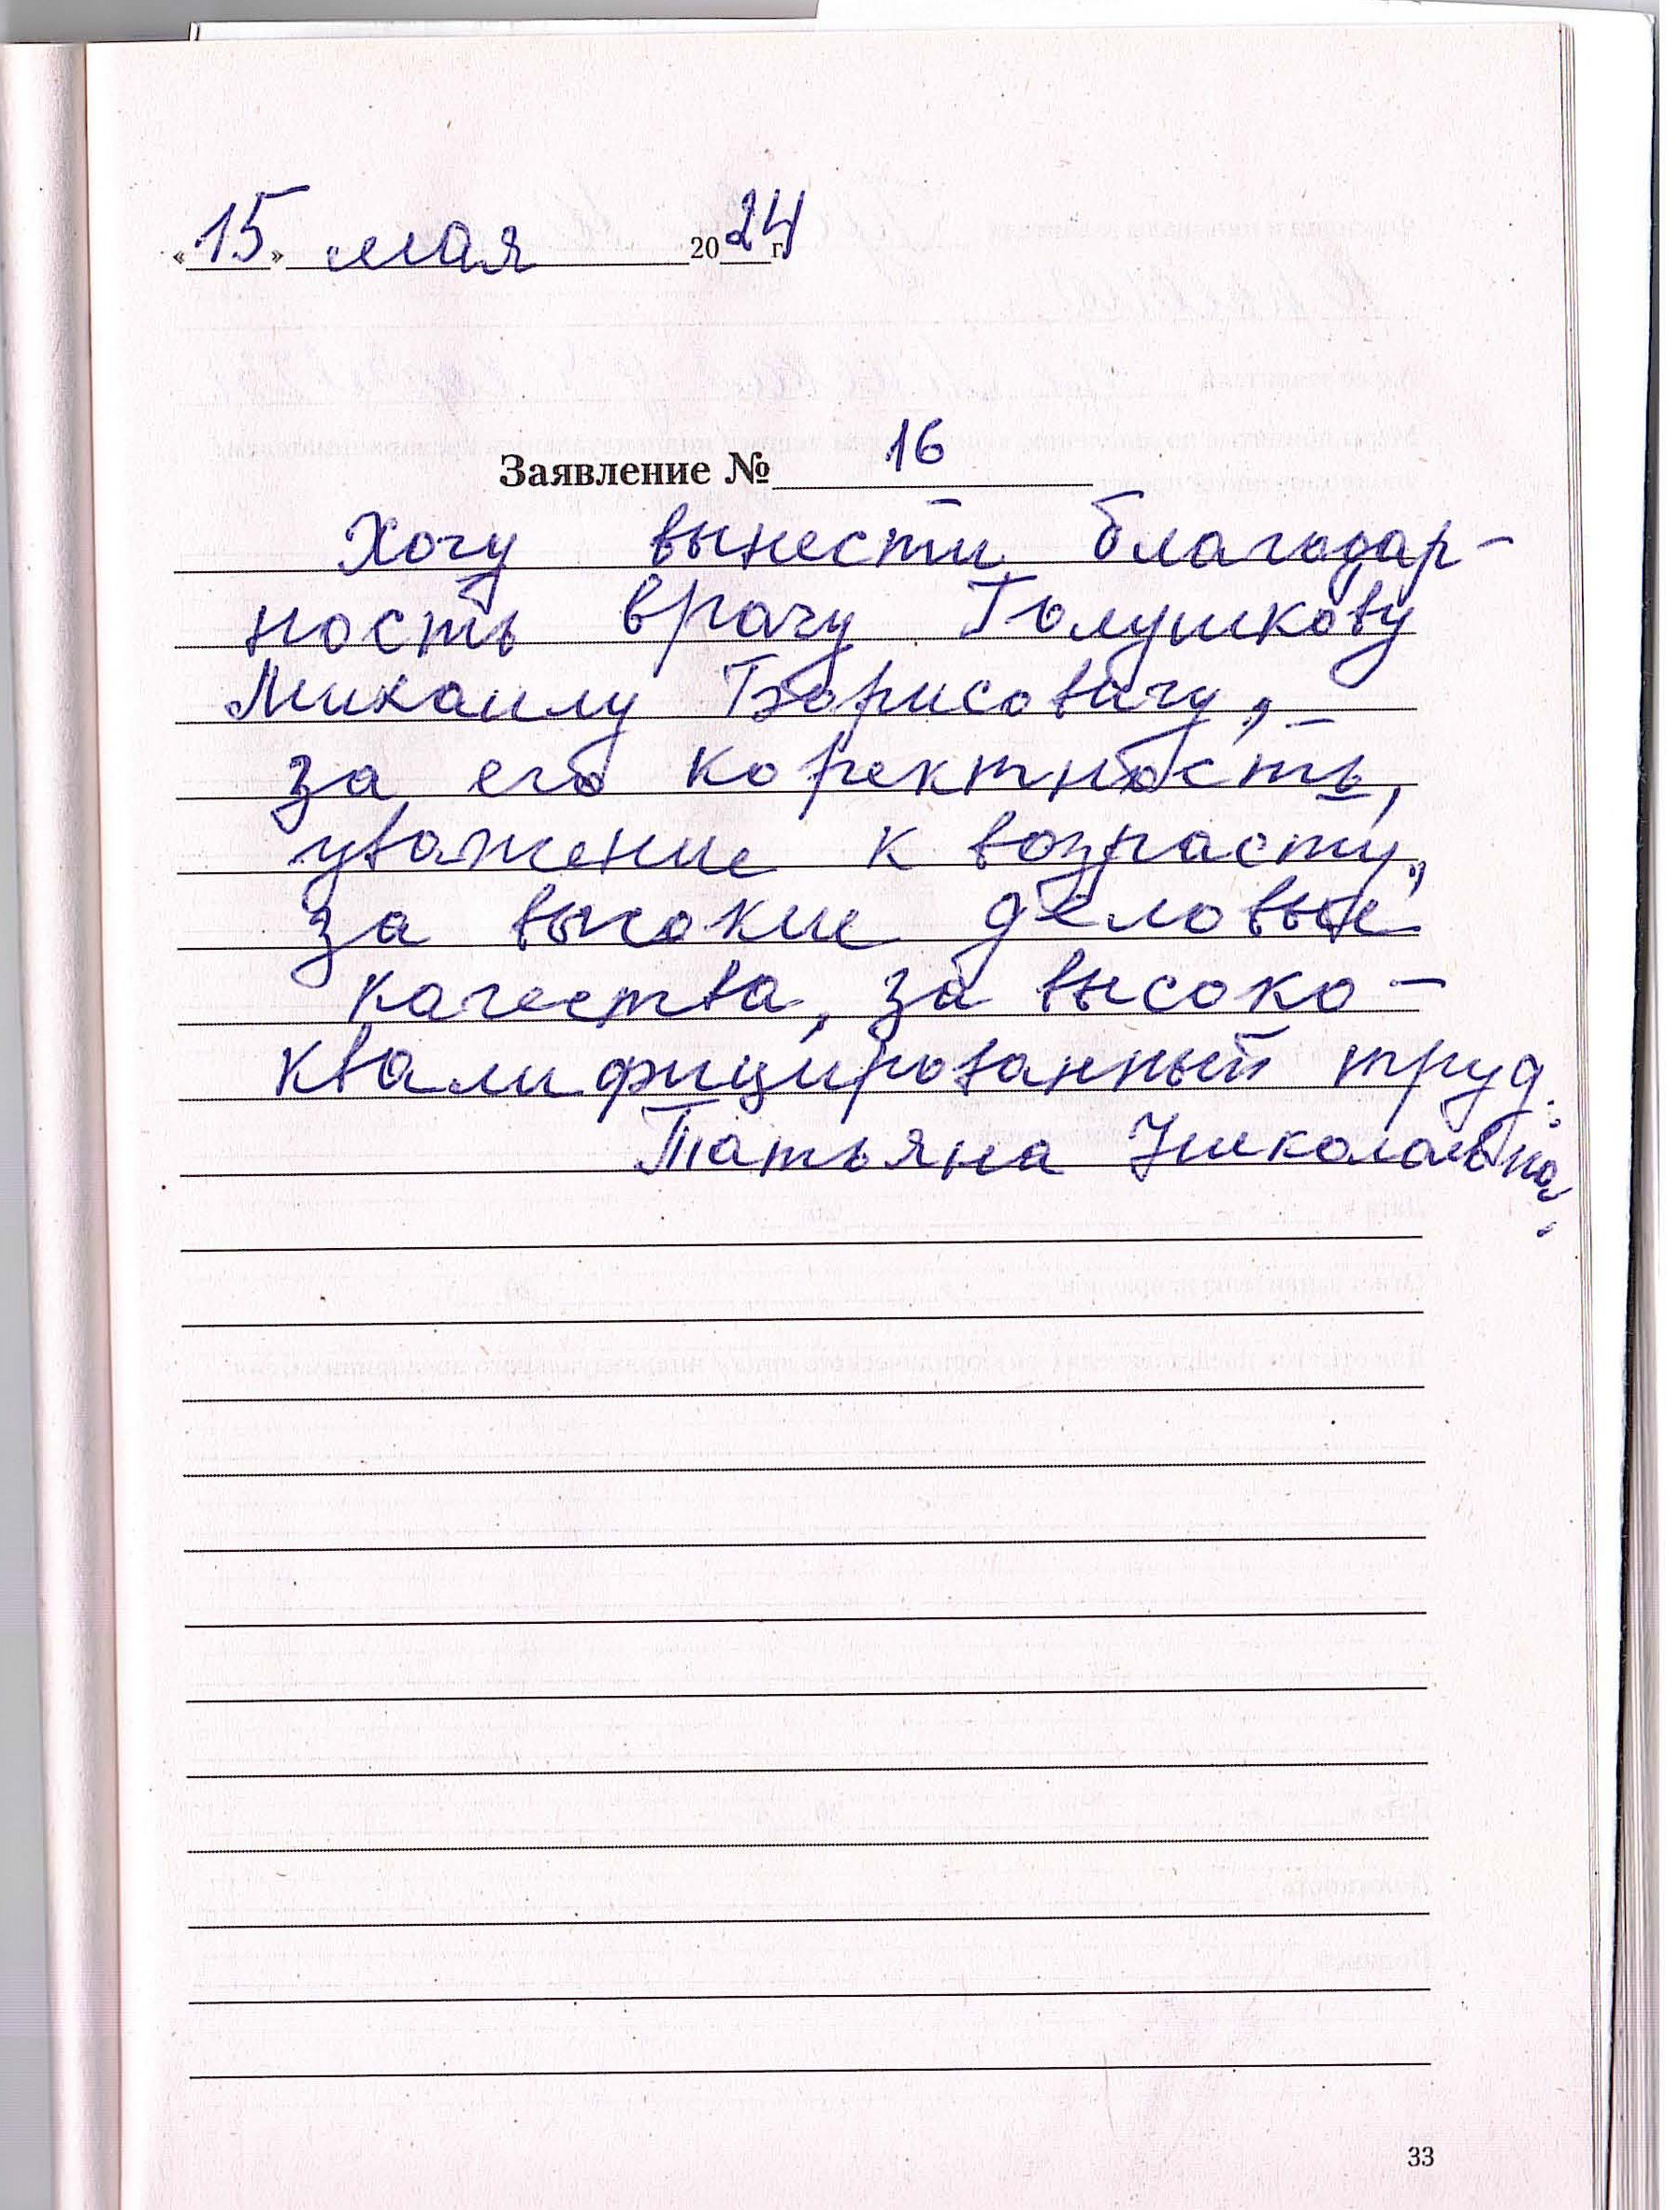 «15» мая 2024 г.
Заявление № 16
Хочу вынести благодар-
ность врачу Голушкову
Михаилу Борисовичу,
за его коректность,
уважение к возрасту,
за высокие деловые
качества, за высоко-
квалифицированный труд.
Татьяна Николаевна.
33